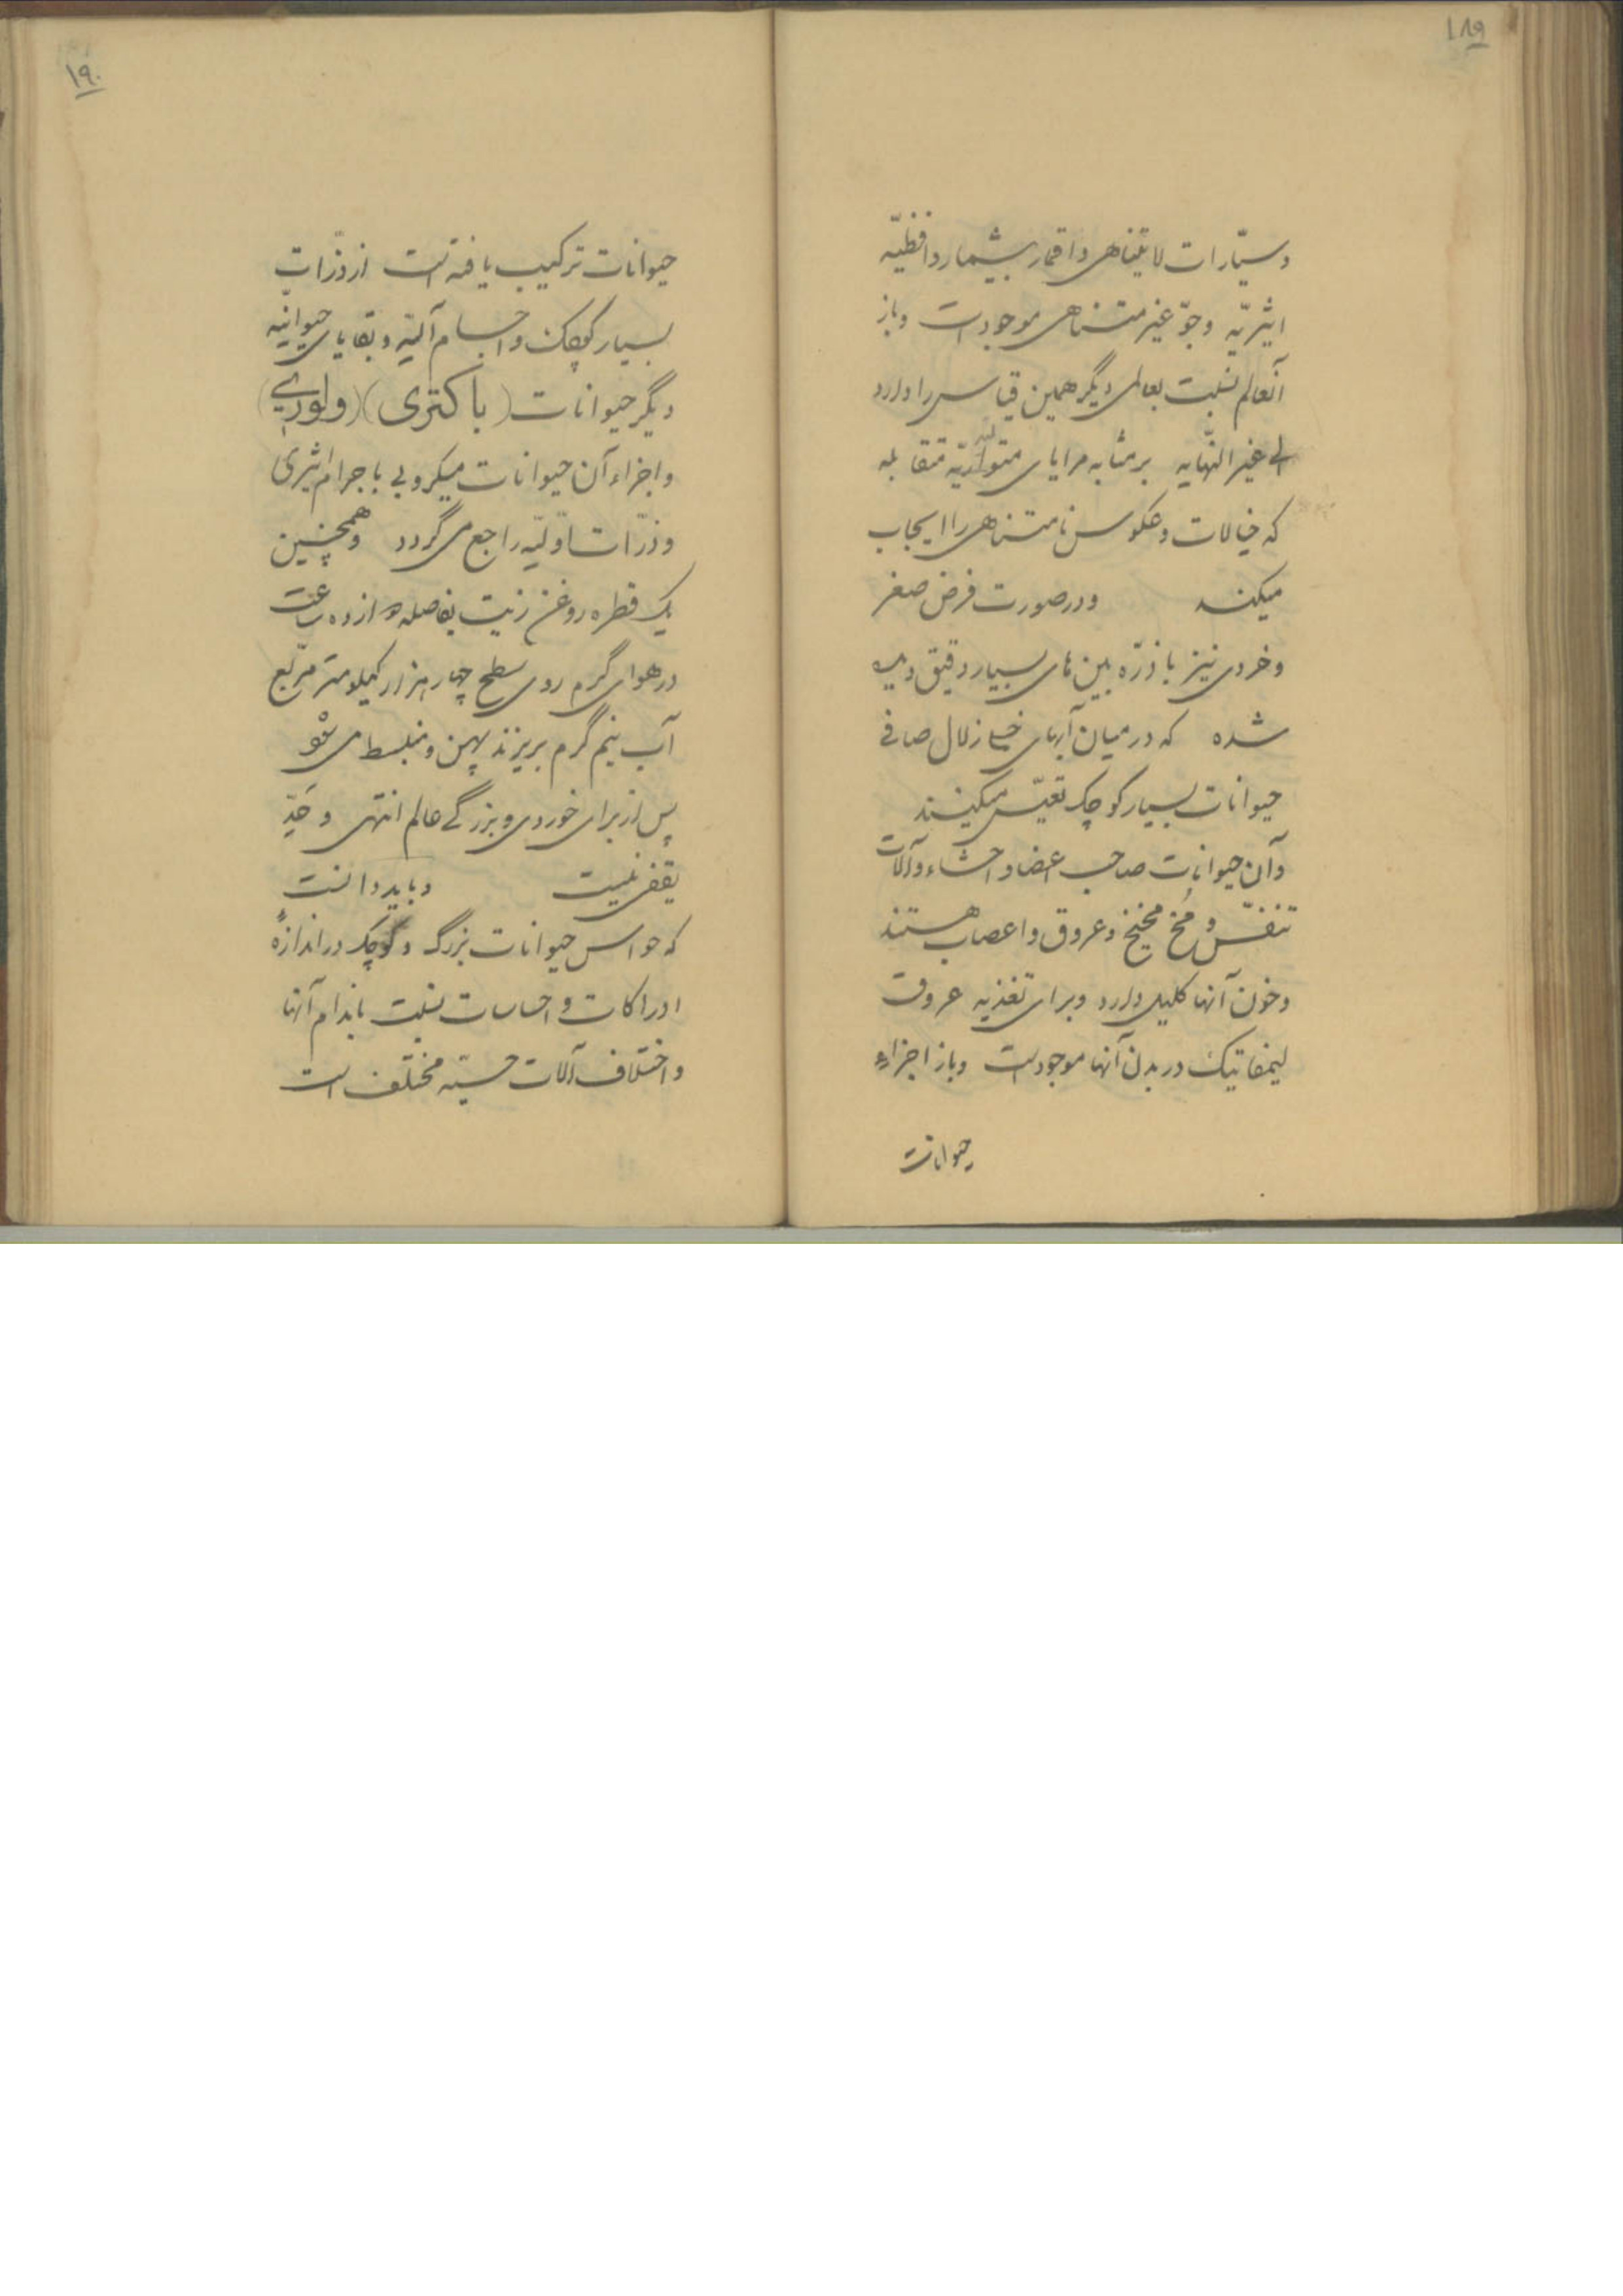 ۱۸۹
و سیّارات لا یتناهی و اقمار بیشمار و افظیّه
اثیریّه و جوّ غیر متناهی موجود است و باز
آنعالم نسبت بعالمی دیگر همین قیاس را دارد
الی غیر النّهایه بر مثابه مرایای متقابله
که خیالات و عکوس نامتناهی را ایجاب
میکند و در صورت فرض صغر
و خردی نیز با ذرّه بین های بسیار دقیق دیده
شده که در میان آبهای خیلی زلال صافی
حیوانات بسیار کوچک تعیّش میکنند
و آن حیوانات صاحب اعضا و احشاء و آلات
تنفّس و مخ و مخیخ و عروق و اعصاب هستند
و خون آنها کلیل دارد و برای تغذیه عروق
لیمفاتیک در بدن آنها موجود است و باز اجزاء
حیوانات
۱۹۰
حیوانات ترکیب یافته است از ذرّات
بسیار کوچک و اجسام آلیّه و بقایای حیوانیّه
دیگر حیوانات (باکتری)
و اجزاء آن حیوانات میکروبی باجرام اثیری
و ذرّات اوّلیّه راجع می گردد و همچنین
یک قطره روغن زیت بفاصله دوازده ساعت
در هوای گرم روی سطح چهار هزار کیلومتر مربّع
آب نیم گرم بریزند پهن و منبسط می شود
پس از برای خوردی و بزرگی عالم انتهی و حَدِّ
یقفی نیست و باید دانست
که حواس حیوانات بزرگ و کوچک در اندازهٔ
ادراکات و احساسات نسبت باندام آنها
و اختلاف آلات حسّیّه مختلف است